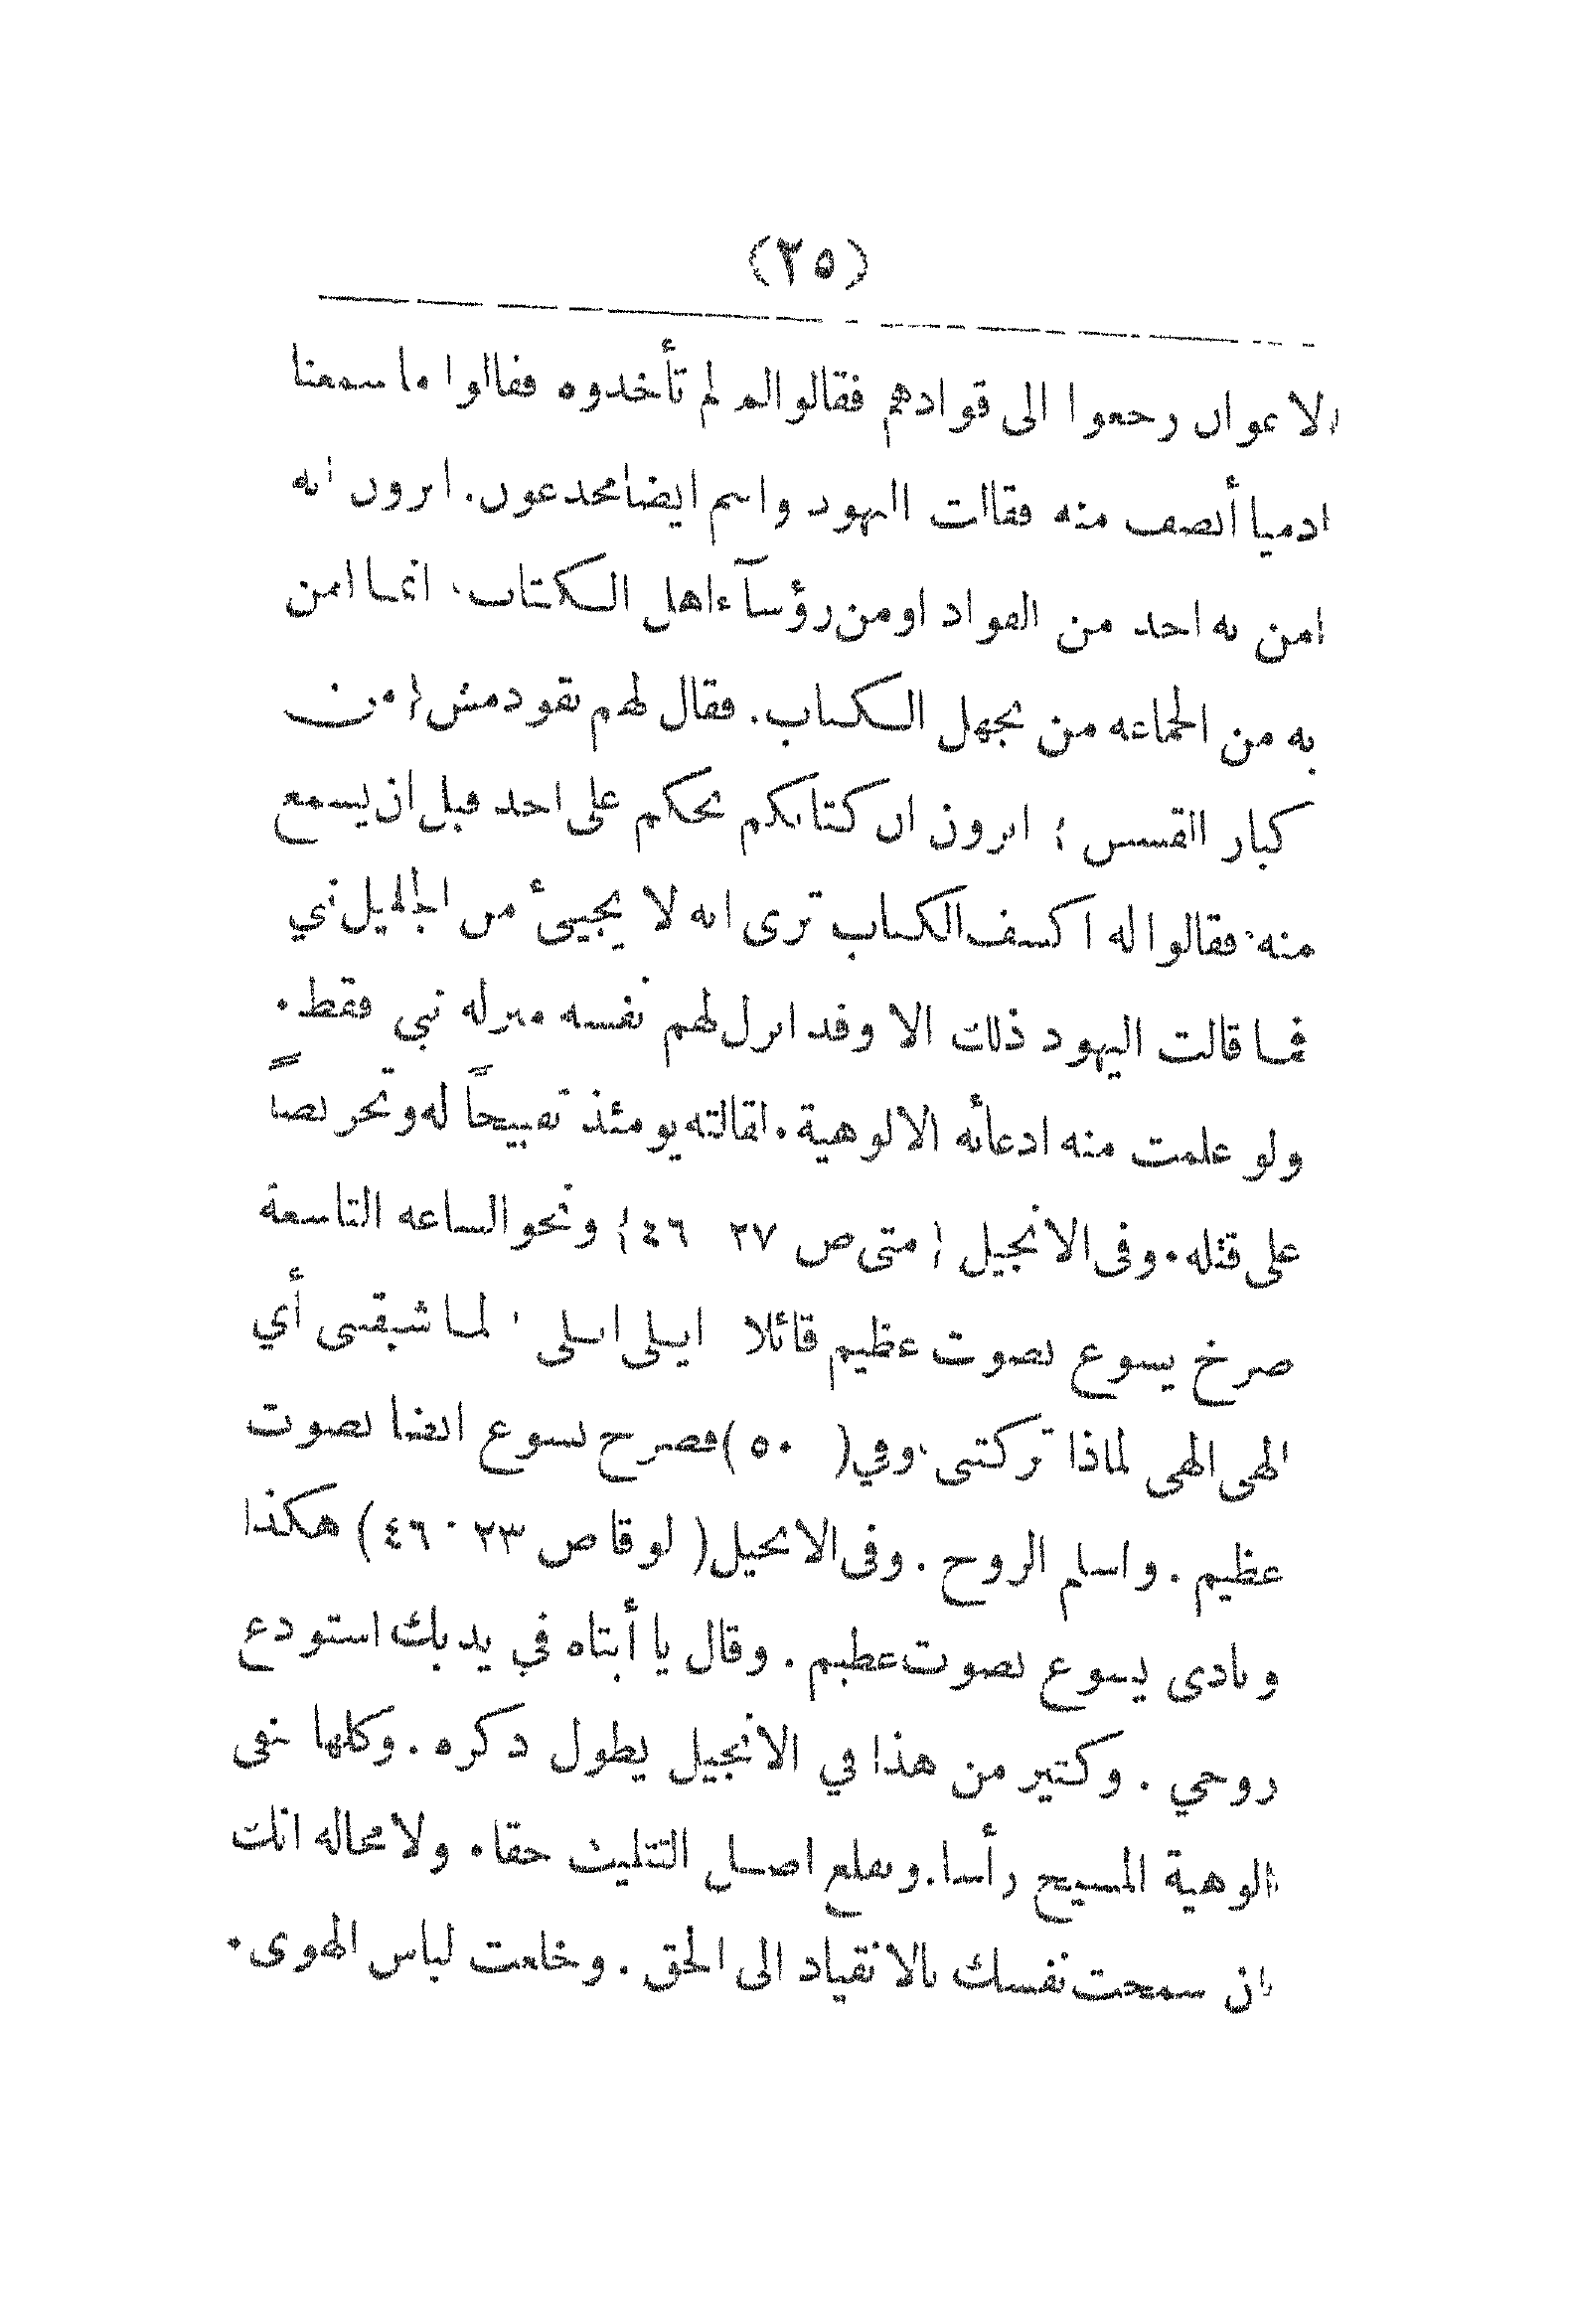 (٢٥)
الاعوان رجعوا الى قوادهم فقالوا لم لم تأخذوه فقالوا ما سمعنا
ادميا أنصف منه فقالت اليهود وانتم ايضا مخدعون. اترون انه
امن به احد من القواد او من رؤسآء اهل الكتاب. انما امن
به من الجماعه من يجهل الكتاب. فقال لهم نقودمش { من
كبار القسس } اترون ان كتابكم يحكم على احد قبل ان يسمع
منه. فقالوا له اكشف الكتاب ترى انه لا يجيئ من الجليل نبي
فما قالت اليهود ذلك الا وقد انزل لهم نفسه منزله نبي فقط.
ولو علمت منه ادعائه الالوهية. لقالته يومئذ تقبيحاً له وتحريضاً
على قتله. وفى الانجيل { متى ص ٢٧ ٤٦} ونحو الساعه التاسعة
صرخ يسوع بصوت عظيم قائلا ايلى ايلى . لما شبقتنى أي
الهى الهى لماذا تركتنى. وفي( ٥٠ )فصرخ يسوع ايضا بصوت
عظيم . واسلم الروح . وفى الانجيل ( لوقا ص ٢٣ . ٤٦ ) هكذا
ونادى يسوع بصوت عظيم . وقال يا أبتاه في يديك استودع
روحي . وكثير من هذا في الانجيل يطول ذكره . وكلها تنفى
الوهية المسيح رأسا. وتقلع اصل التثليث حقا. ولا محاله انك
ان سمحت نفسك بالانقياد الى الحق . وخلعت لباس الهوى.